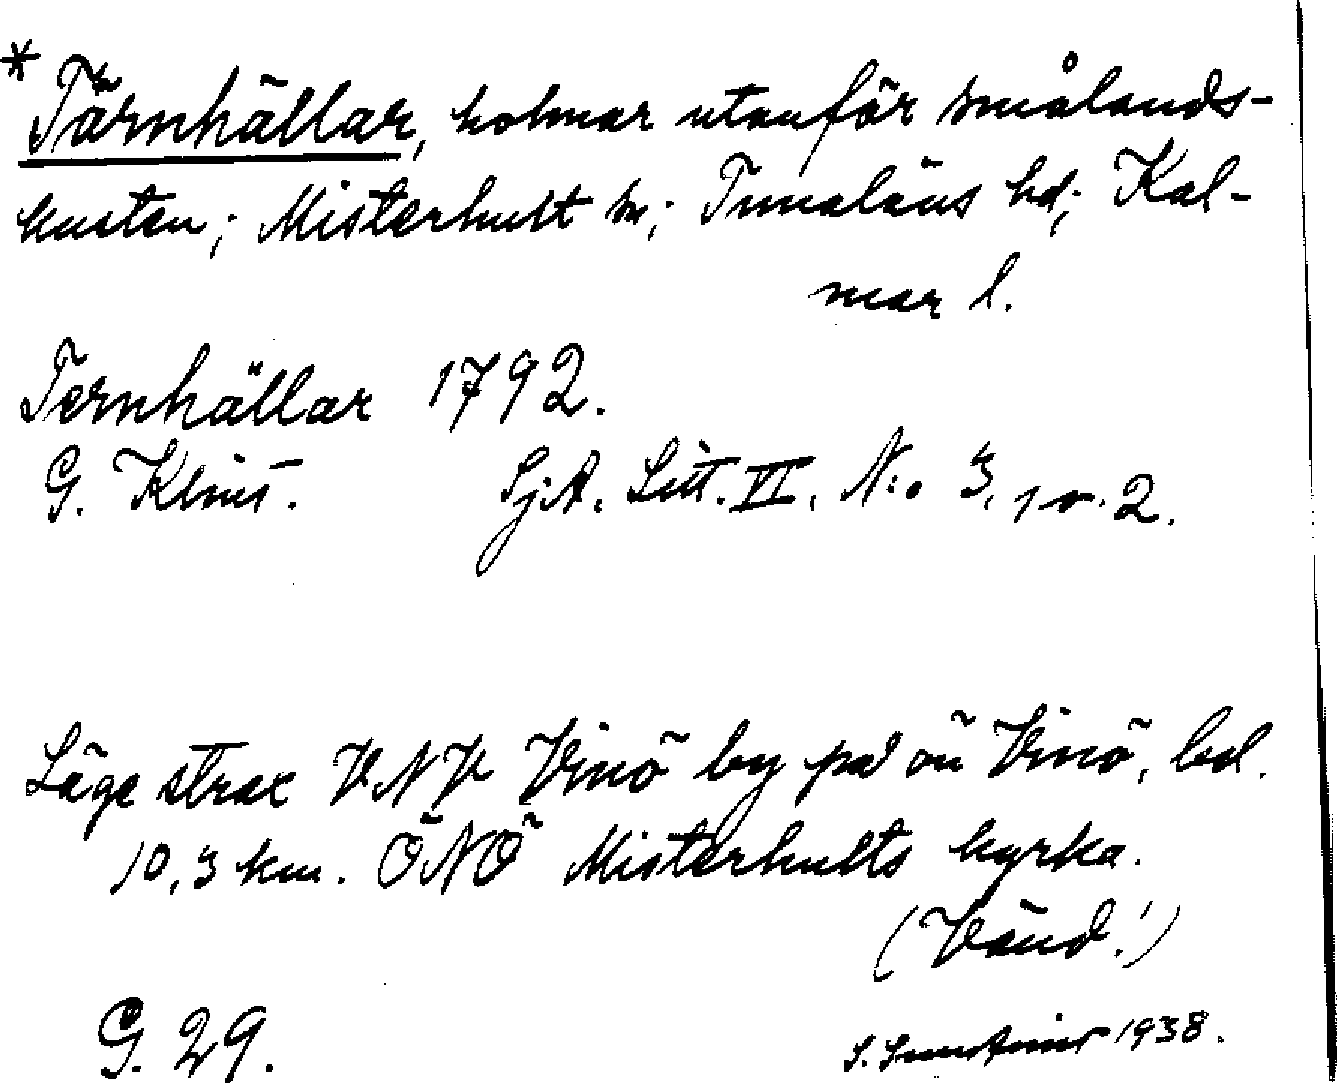 * Tärnhällar, holmar utanför smålands-
kusten; Misterhult sn; Tunaläns hd; Kal-
mar l.
Ternhällar 1792.
G. Klint. Sj:A. Litt. VI. N:o 3, 1 o. 2.
Läge strax VNV Vinö by på ön Vinö, bel.
10,3 km. ÖNÖ Misterhults kyrka.
(Vänd!)
G. 29. 1938.